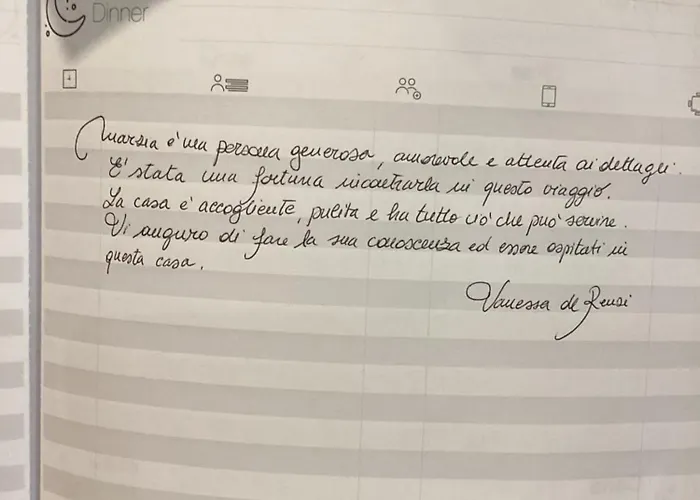 Dinner
Marzia è una persona generosa, amorevole e attenta ai dettagli.
E' stata una fortuna incontrarla in questo viaggio.
La casa è accogliente, pulita e ha tutto ciò che può servire.
Vi auguro di fare la sua conoscenza ed essere ospitati in
questa casa.
Vanessa de